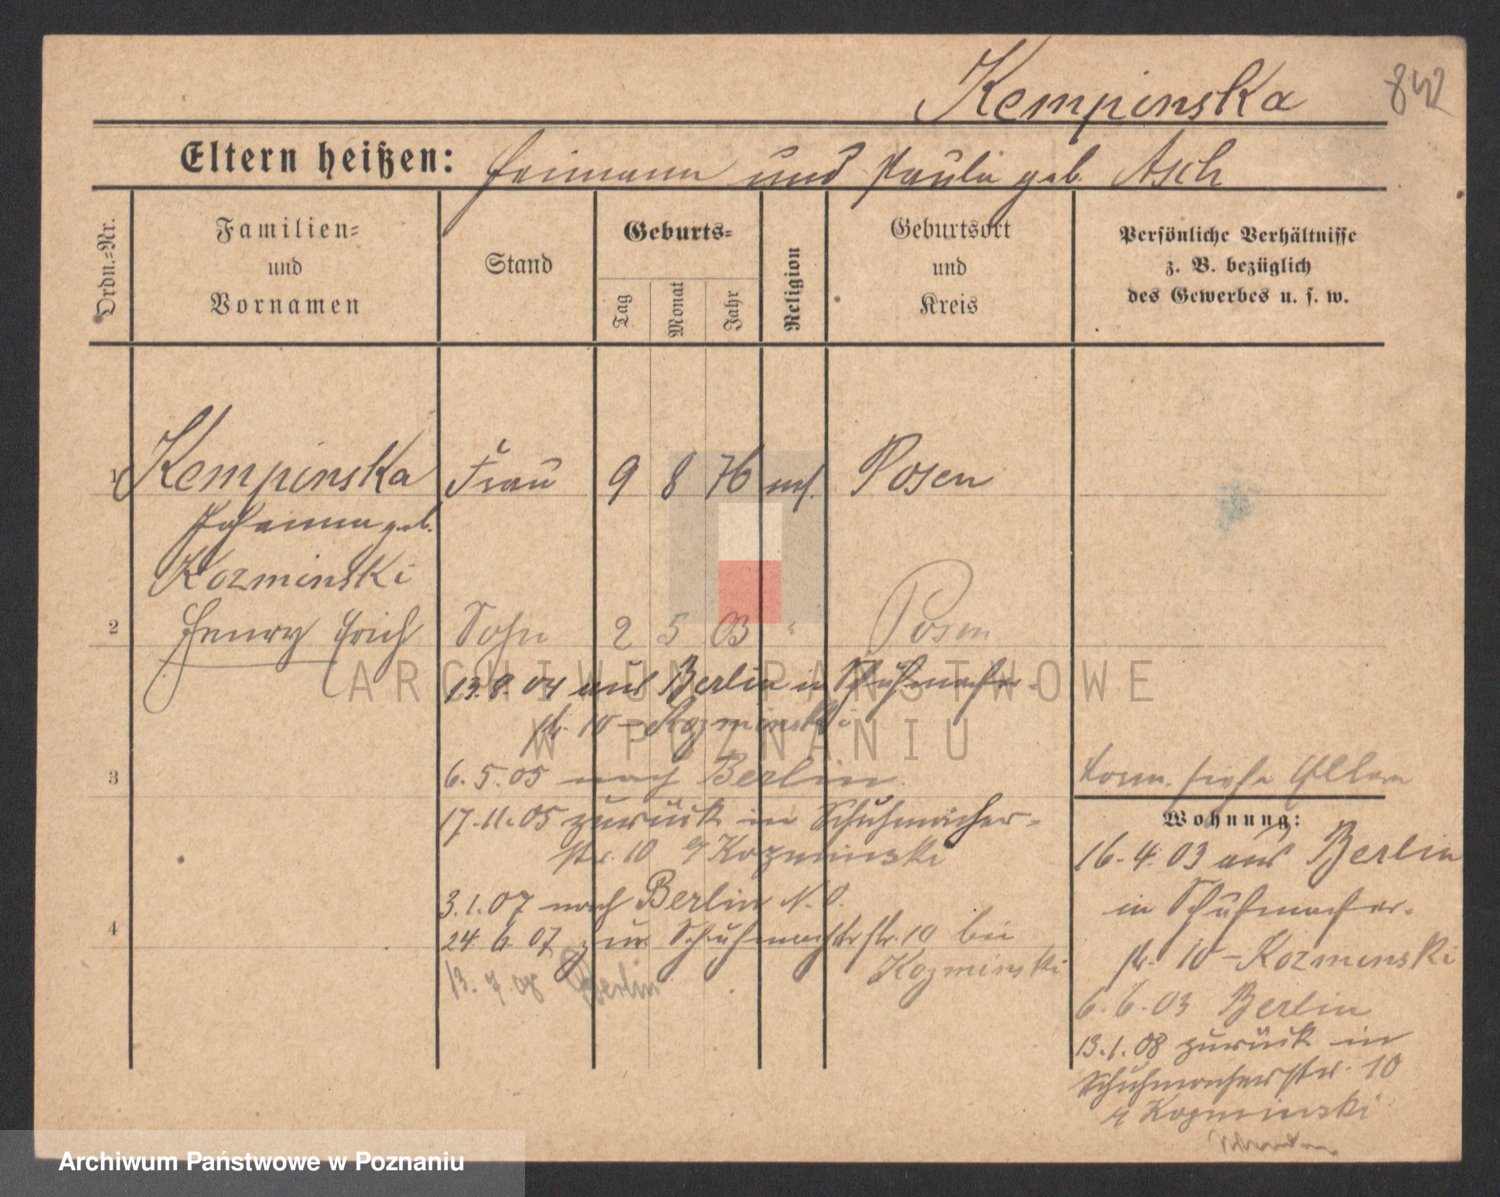 Kempinska 842
Eltern heißen: Heimann und Paulin geb. Asch
Ordn.-Nr.
Familien-
und
Vornamen
Stand
Geburts-
Tag
Monat
Jahr
Religion
Geburtsort
und
Kreis
Persönliche Verhältnisse
z. B. bezüglich
des Gewerbes u. s. w.
1 Kempinska Frau 9 8 76 mos. Posen
Johanna geb.
Kozminski
2 Henry Erich Sohn 2 5 03 " Posen
13.9.04 aus Berlin in Schuhmacher-
str. 10 - Kozminski
3
6.5.05 nach Berlin
17.11.05 zurück in Schuhmacher-
str. 10 Kozminski
3.1.07 nach Berlin N.O.
4
24.6.07 zur Schuhmacherstr. 10 bei
Kozminski
13.7.08 Berlin
siehe Eltern
Wohnung:
16.4.03 aus Berlin
in Schuhmacher-
str. 10 - Kozminski
6.6.03 Berlin
13.1.08 zurück in
Schuhmacherstr. 10
Kozminski
ARCHIWUM PAŃSTWOWE
W POZNANIU
Archiwum Państwowe w Poznaniu